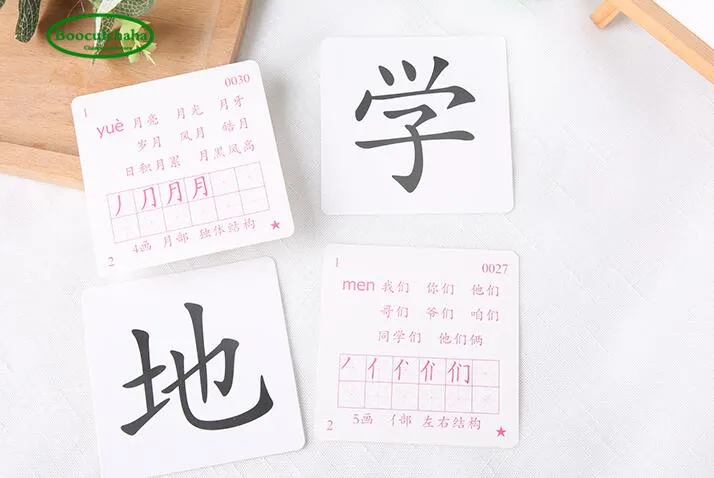 Boocukhaha
1
0030
yuè 月亮 月光 月牙
岁月 风月 皓月
日积月累 月黑风高
丿 ⺆ 月 月
2
4画 月部 独体结构
学
地
1
0027
men 我们 你们 他们
哥们 爷们 咱们
同学们 他们俩
丿 亻 亻 们 们
2
5画 亻部 左右结构